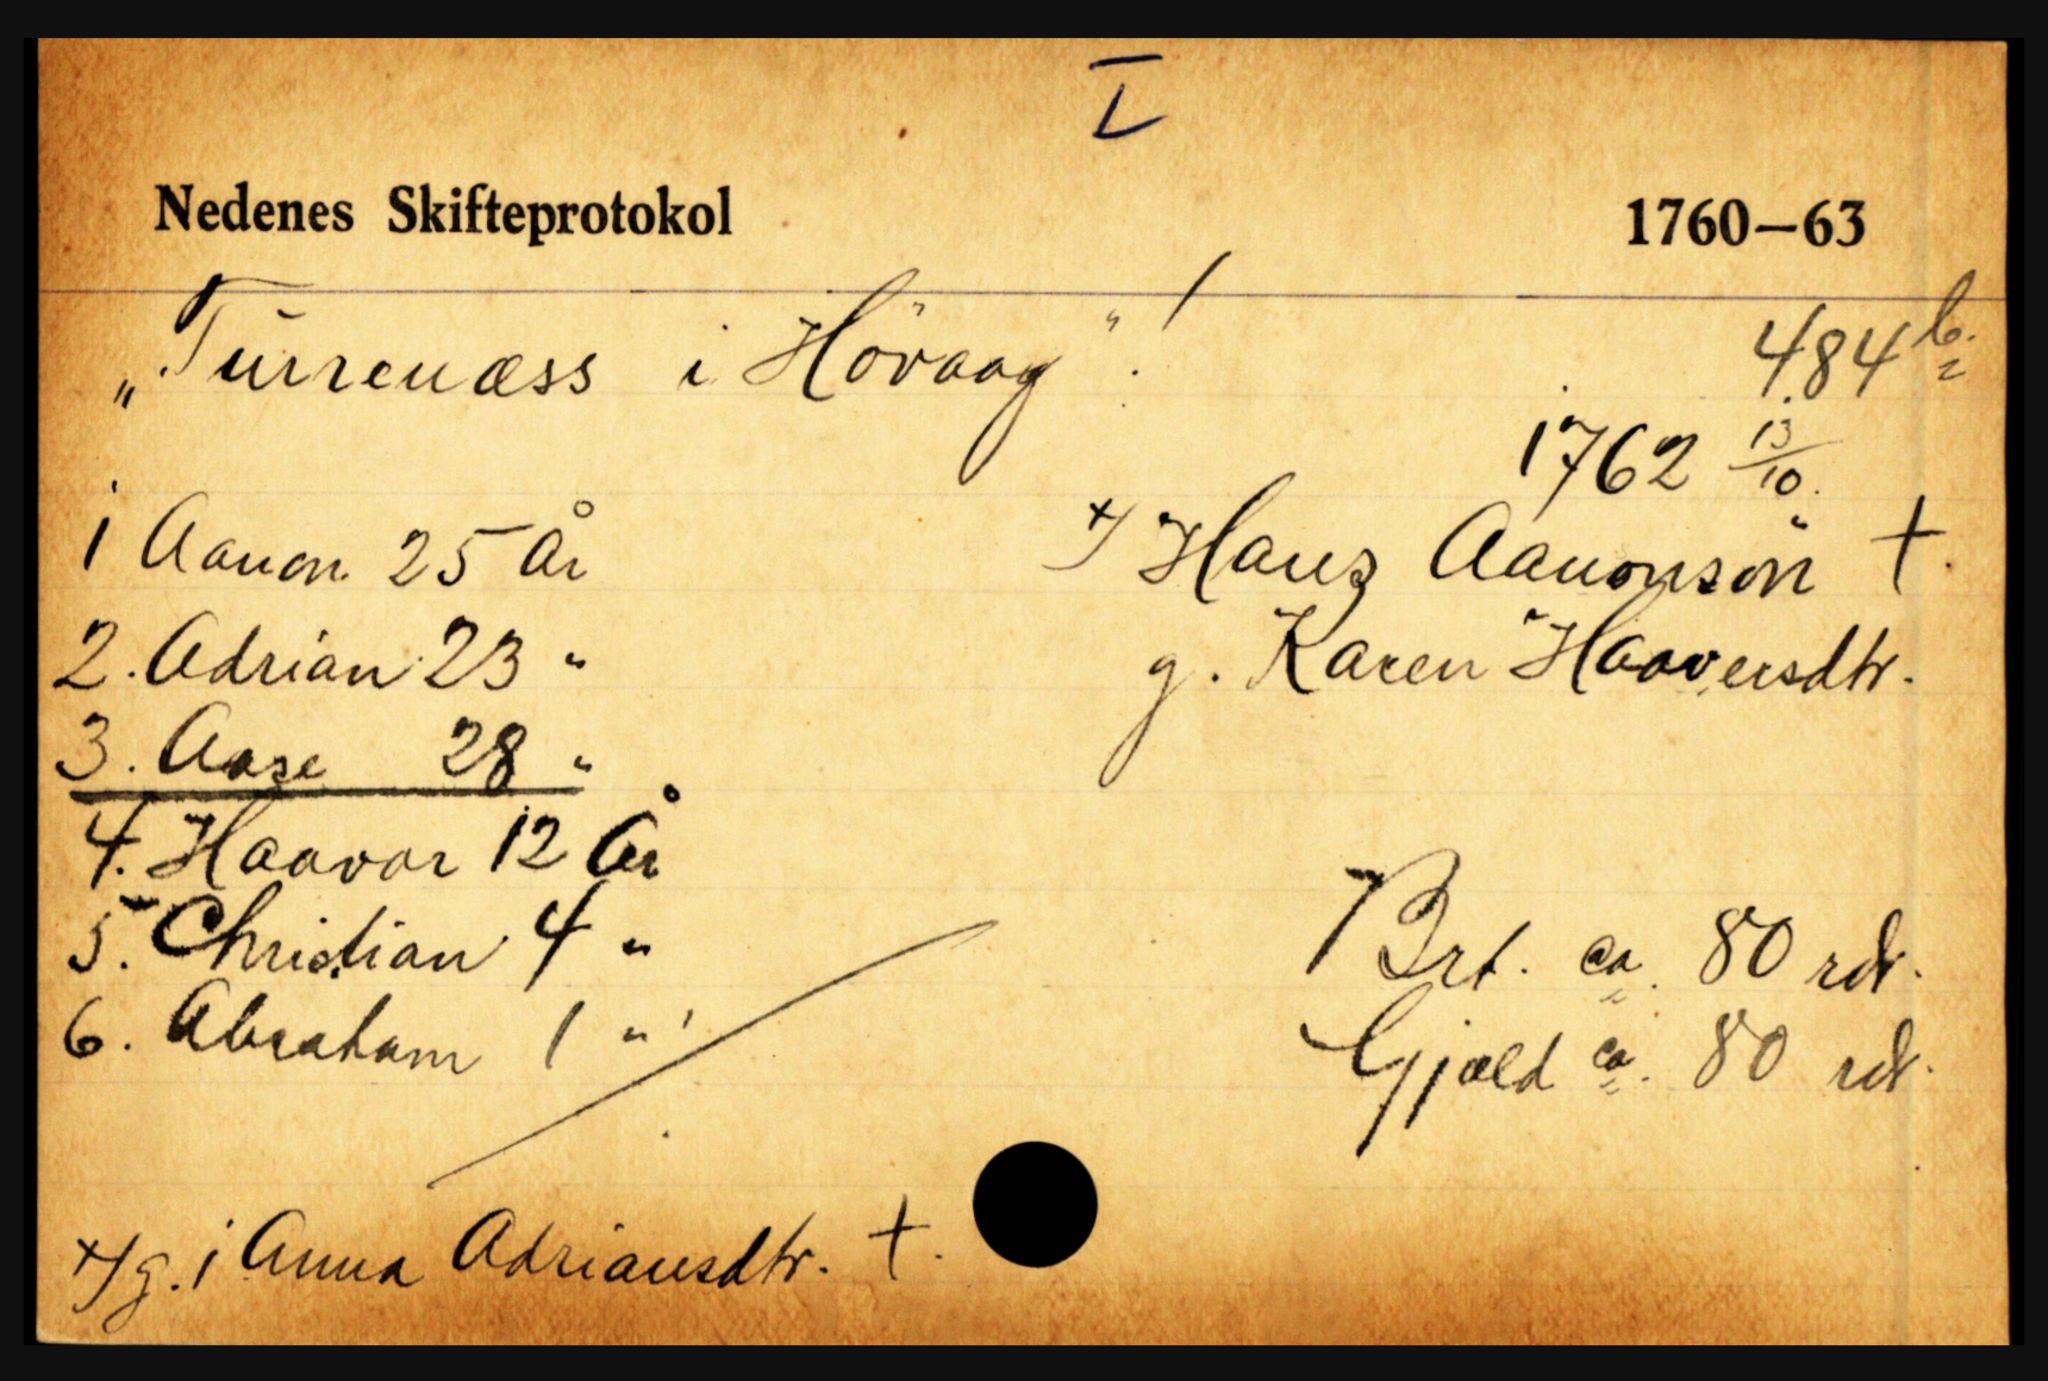 I
Nedenes Skifteprotokol 1760—63
„Turrenæss i Hövaag"!
484 b.
1762 13/10.
1 Aanon 25 År
2. Adrian 23 "
3. Aase 28 "
4. Haavor 12 År
5. Christian 4 "
6. Abraham 1 "
+/ Hans Aanonsön †.
g. Karen Haaversdtr.
Brt. ca. 80 rdr.
Gjæld ca. 80 rdr.
+/ g. 1 Anna Adriansdtr. †.